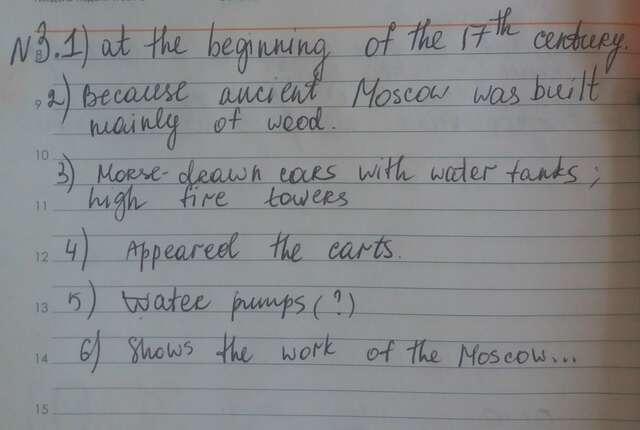 N 3.1) at the beginning of the 17th century.
2) Because ancient Moscow was built
mainly of wood.
10
3) Horse-drawn cars with water tanks;
11 high fire towers
12 4) Appeared the carts.
13 5) Water pumps (?)
14 6) Shows the work of the Moscow...
15